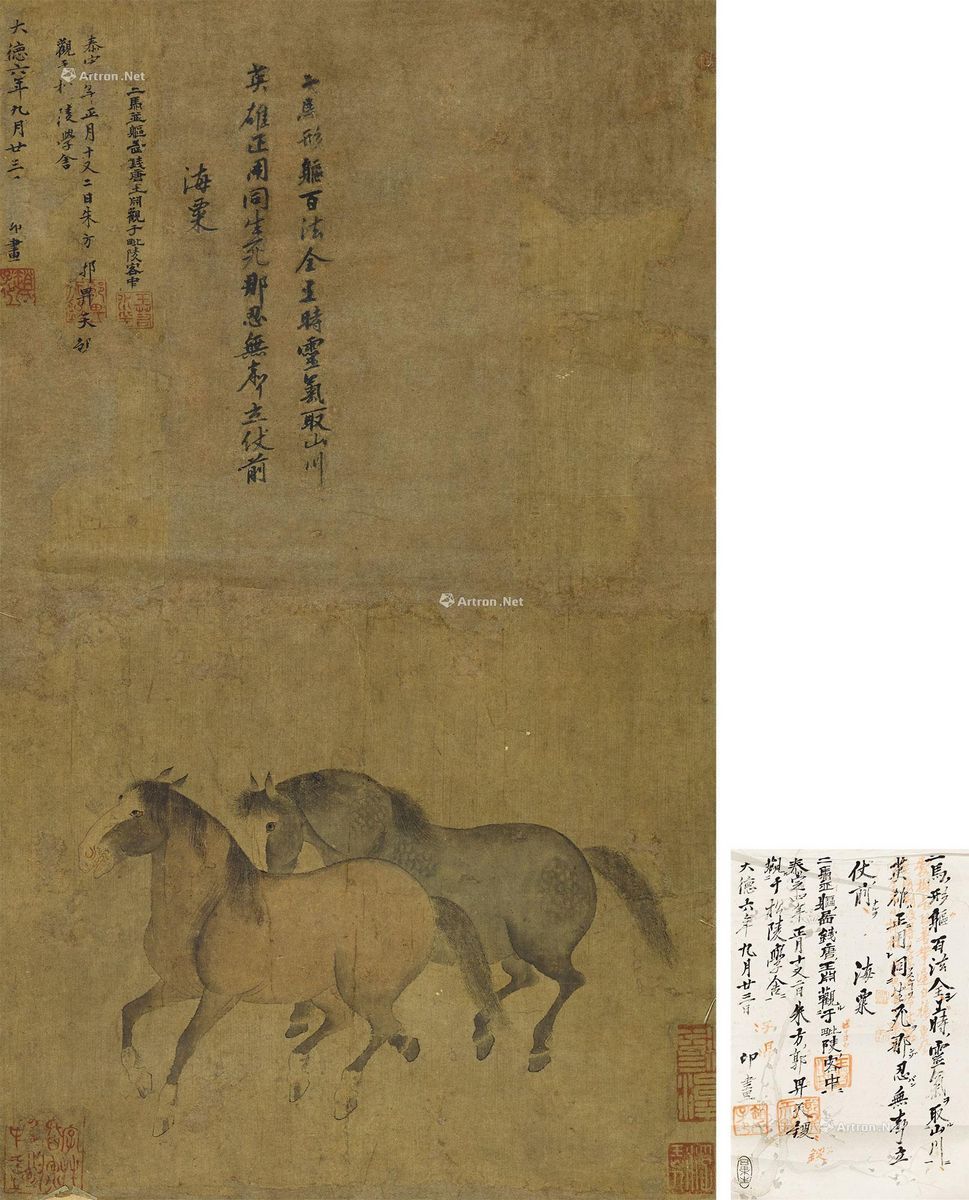 二馬形軀百法全生時靈氣取山川
英雄正用同生死那忍無聲立仗前
海粟
二馬並軀 錢唐王 觀于毗陵客中
泰定 年正月十又二日朱方郭畀天錫
觀于松陵學舍
大德六年九月廿三日 印畫
Artron.Net
Artron.Net
二馬形軀百法全生時靈氣取山川
英雄正用同生死那忍無聲立
仗前
海粟
二馬並軀 錢唐王 觀于毗陵客中
泰定 年正月十又二日朱方郭畀天錫
觀于松陵學舍
大德六年九月廿三日 印畫
Artron.Net